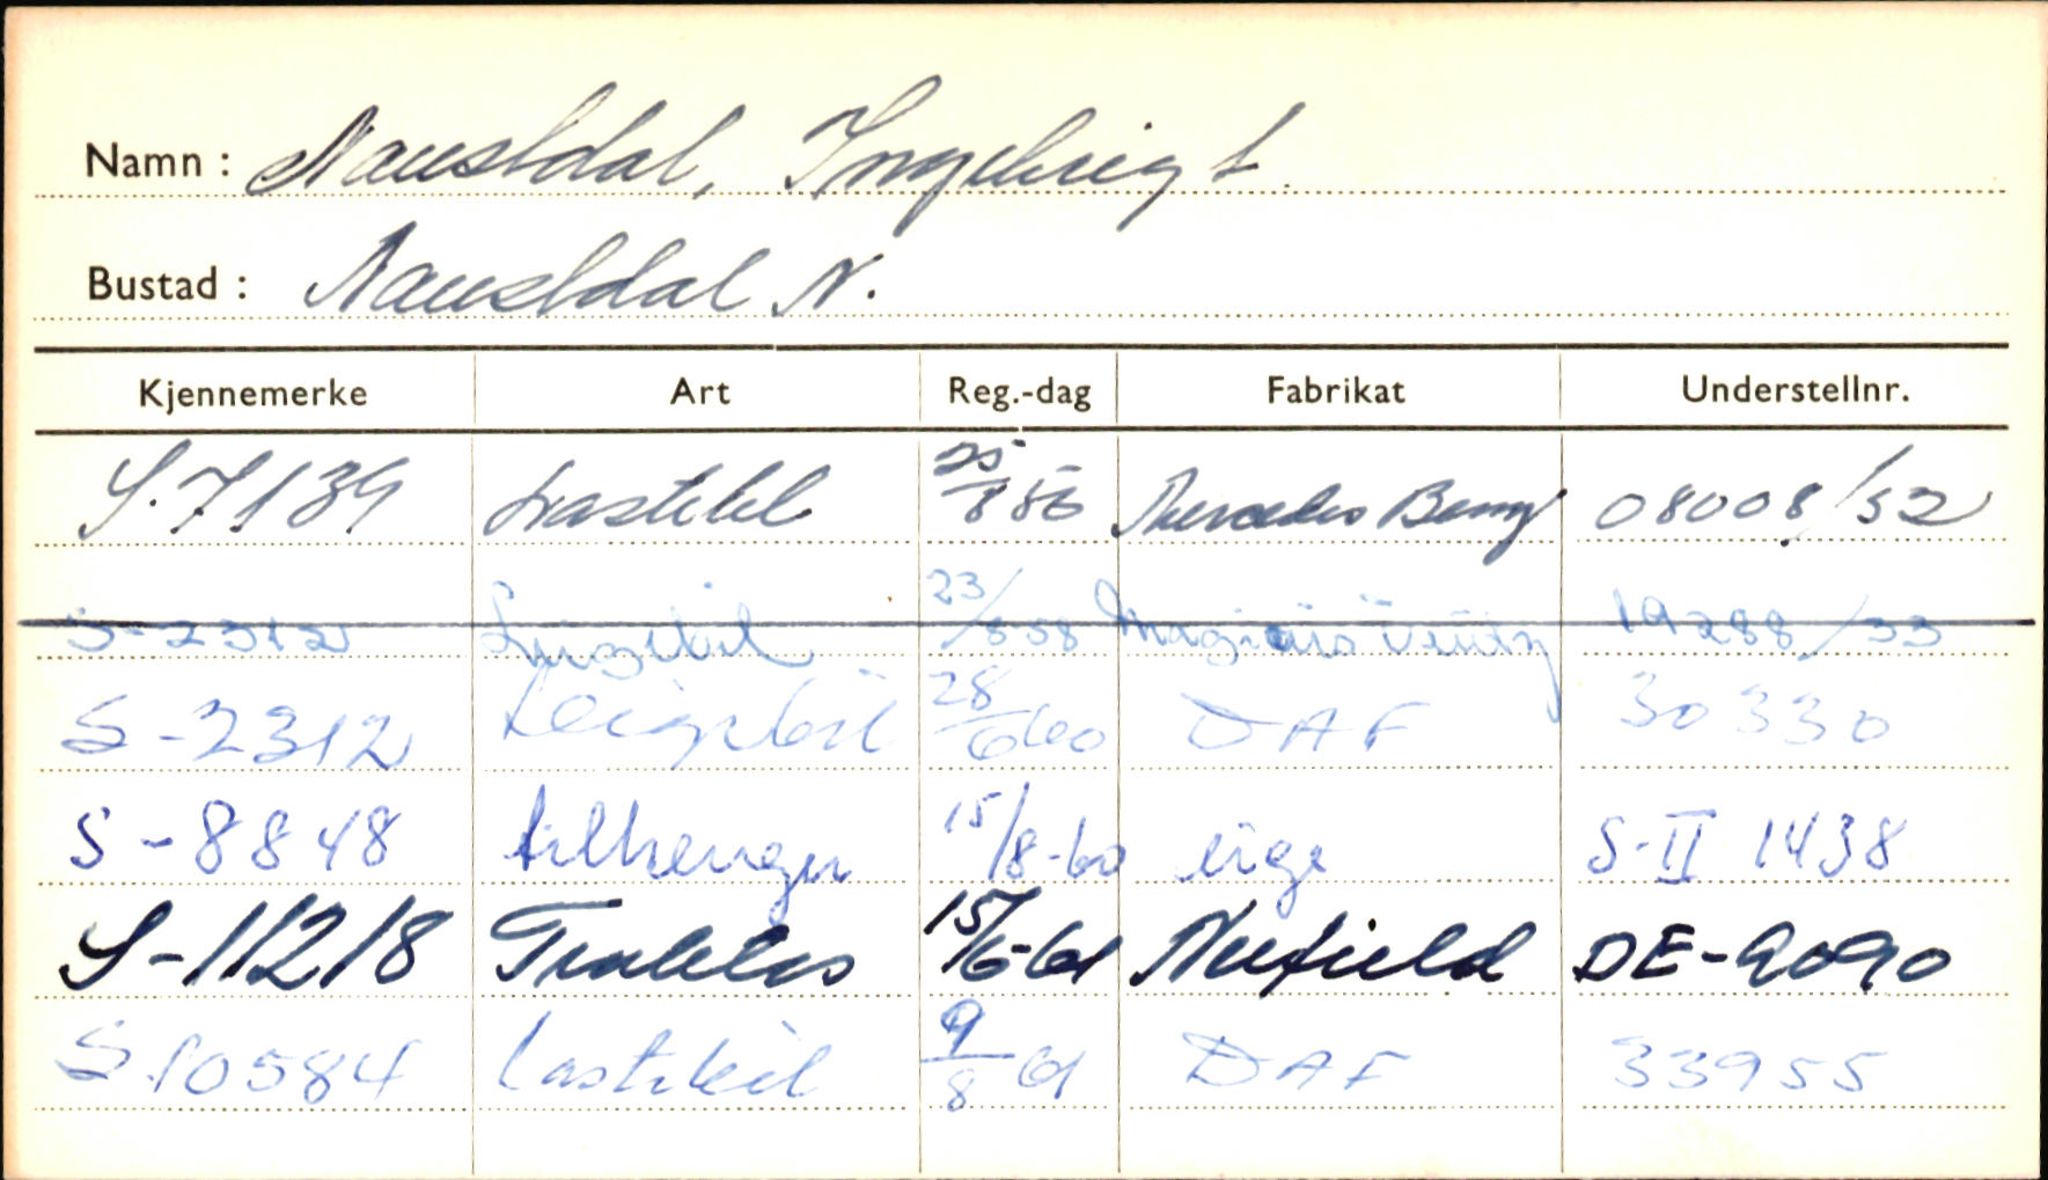 Namn : Naustdal, Ingebrigt.
Bustad : Naustdal N.
Kjennemerke Art Reg.-dag Fabrikat Understellnr.
S.7139 Lastebil 25/8 56 Mercedes Benz 08008/52
S-2312 23/8-58 19288/33
S-2312 28/6 60 DAF 30330
S-8848 tilhenger 15/8-60 eige S-II 1438
S-11218 Traktor 15/6-61 Nufield DE-9090
S.10584 Lastebil 9/8 61 DAF 33955